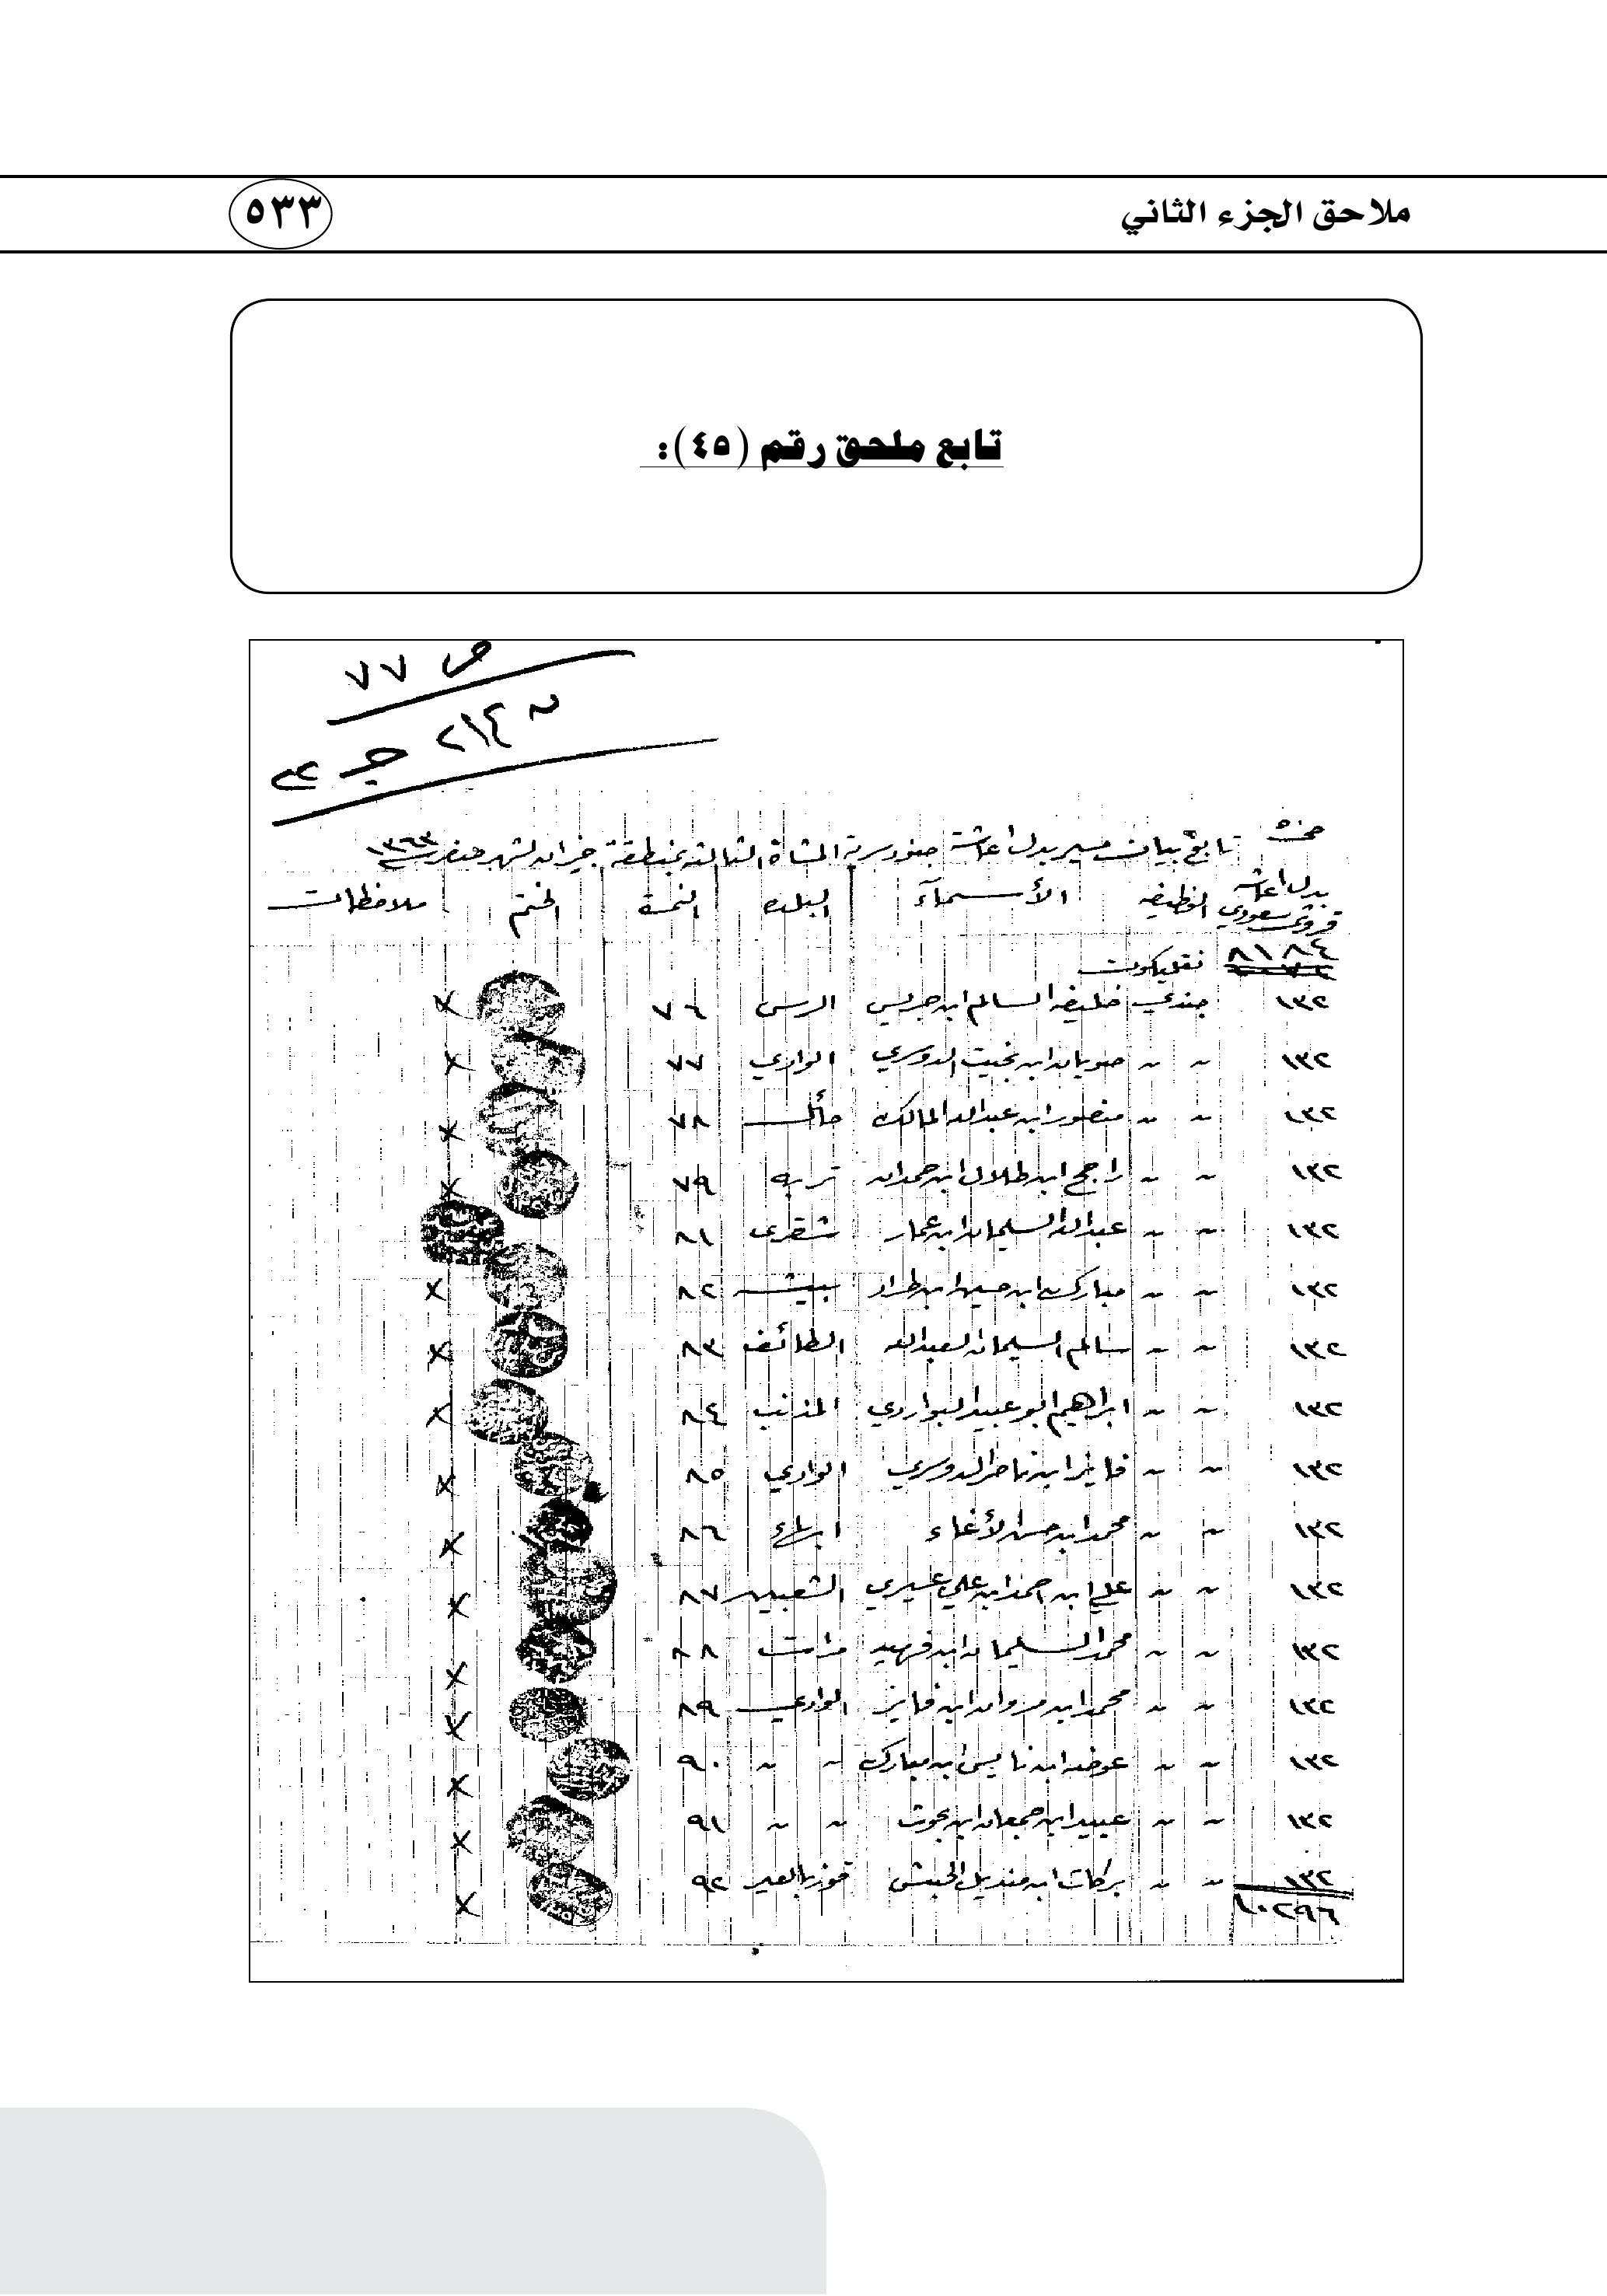 ملاحق الجزء الثاني ٥٣٣
تابع ملحق رقم (٤٥):
ص ٧٧
٢١٤ جـ ٤
تابع بيان مسير بدل اعاشة جنود سرية المشاة الثالثة بمنطقة جيزان لشهر صفر ١٣٦٣
بدل اعاشه قروش سعودي الوظيفه الأسمآء البلده النمرة الختم ملاحظات
٨١٨٤
١٣٢ جندي خليفه السالم ابن جريس الرس ٧٦ ×
١٣٢ " " ابن بخيت الدوسري الوادي ٧٧ ×
١٣٢ " " منصور ابن عبدالله المالك حائل ٧٨ ×
١٣٢ " " راجح ابن طلال ابن حمدان تربه ٧٩ ×
١٣٢ " " عبدالله السليمان ابن عمار شقرى ٨١
١٣٢ " " مبارك ابن حسين ابن طراد بيشه ٨٢ ×
١٣٢ " " سالم السليمان العبدالله الطائف ٨٣ ×
١٣٢ " " ابراهيم ابو عبيد البواردي المذنب ٨٤ ×
١٣٢ " " فايز ابن ناصر الدوسري الوادي ٨٥ ×
١٣٢ " " محمد ابن حسن الأغاء ابها ٨٦ ×
١٣٢ " " علي ابن احمد ابن علي عسيري الشعبين ٨٧ ×
١٣٢ " " محمد السليمان ابن فهيد مرات ٨٨ ×
١٣٢ " " محمد ابن مروان ابن فايز الوادي ٨٩ ×
١٣٢ " " عوضه ابن نايس ابن مبارك " " ٩٠ ×
١٣٢ " " عبيد ابن جمعان ابن بحوت " " ٩١ ×
١٣٢ " " بركات ابن منديل الحبشي قوز بالعير ٩٢ ×
١٠٢٩٦